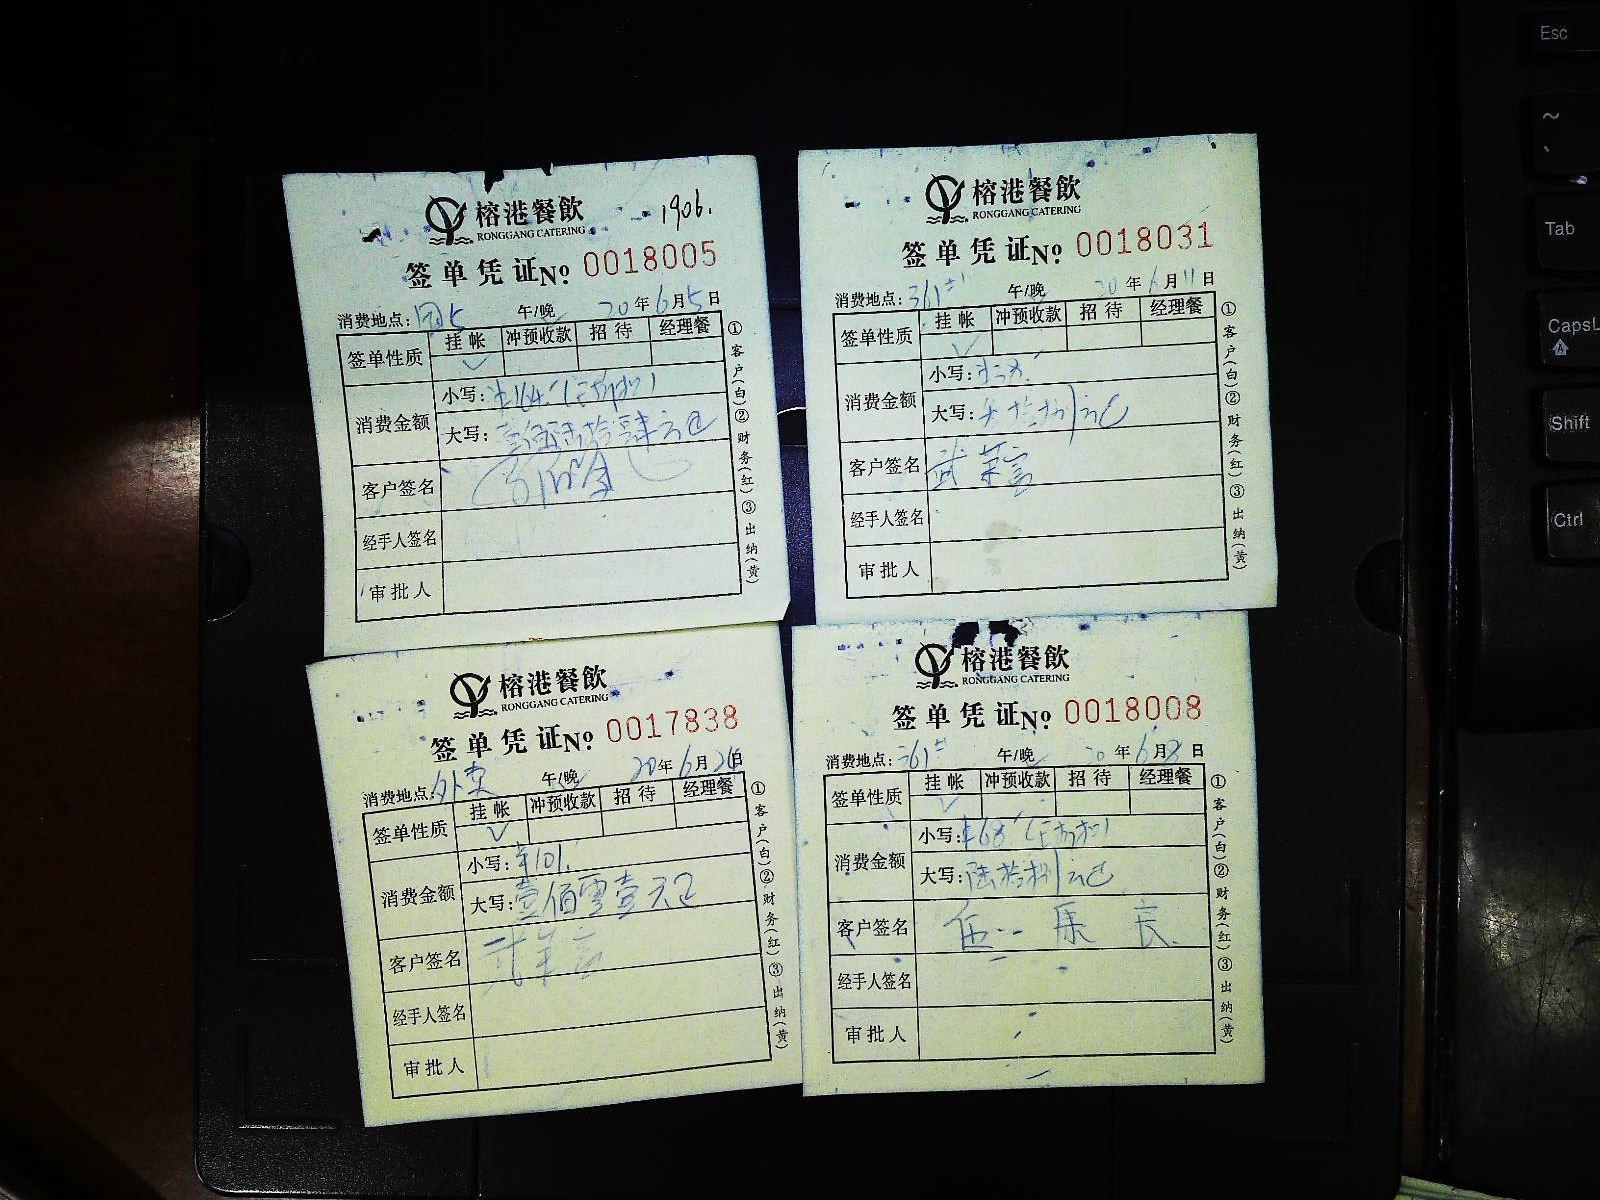 榕港餐飲
1906.
RONGGANG CATERING
签单凭证 No. 0018005
消费地点: 午/晚 20年6月5日
签单性质 挂帐 冲预收款 招待 经理餐
消费金额
小写: ¥164
大写: 壹佰陆拾肆元正
客户签名
经手人签名
审批人
①客户(白)②财务(红)③出纳(黄)
榕港餐飲
RONGGANG CATERING
签单凭证 No. 0018031
消费地点: 361# 午/晚 20年6月11日
签单性质 挂帐 冲预收款 招待 经理餐
消费金额
小写:
大写:
客户签名
经手人签名
审批人
①客户(白)②财务(红)③出纳(黄)
榕港餐飲
RONGGANG CATERING
签单凭证 No. 0017838
消费地点: 外卖 午/晚 20年6月26日
签单性质 挂帐 冲预收款 招待 经理餐
消费金额
小写: ¥101.
大写: 壹佰零壹元正
客户签名
经手人签名
审批人
①客户(白)②财务(红)③出纳(黄)
榕港餐飲
RONGGANG CATERING
签单凭证 No. 0018008
消费地点: 361# 午/晚 20年6月8日
签单性质 挂帐 冲预收款 招待 经理餐
消费金额
小写: ¥68
大写: 陆拾捌元正
客户签名
经手人签名
审批人
①客户(白)②财务(红)③出纳(黄)
Esc
~
Tab
CapsL
Shift
Ctrl